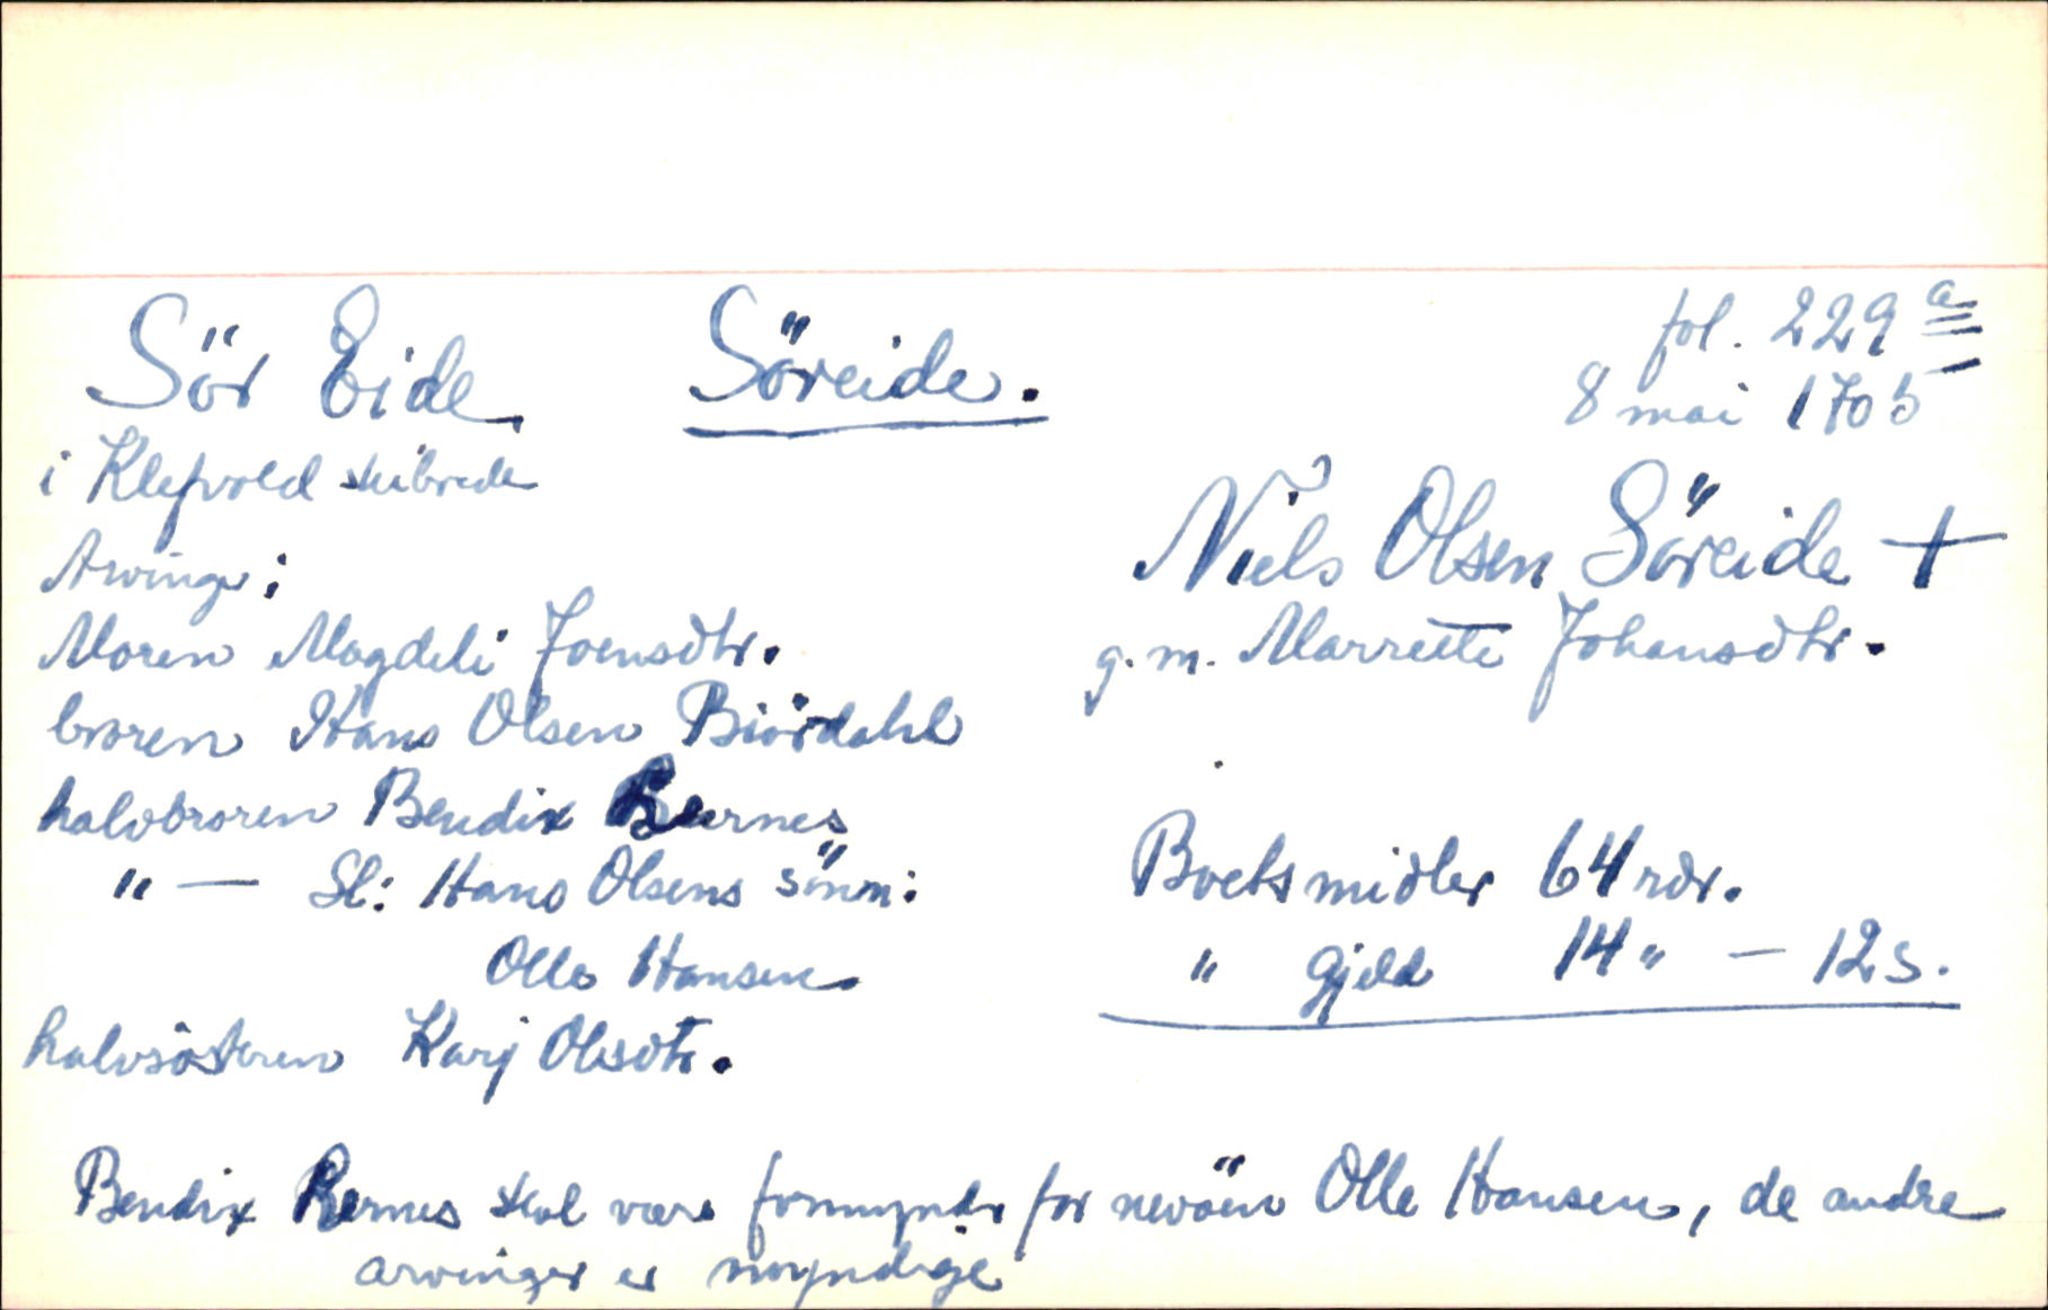 Sör Eide Söreide. fol. 229 a
8 mai 1705
i Klepvold skibrede
Niels Olsen Söreide +
Arvinger:
g.m. Marreete Johansdtr.
Moren Magdeli Joensdtr.
broren Hans Olsen Biördahl
halvbroren Bendix
" — Sl: Hans Olsens sönn:
Boets midler 64 rdr.
Olle Hansen.
" gjeld 14 " — 12 s.
halvsösteren Karj Olsdtr.
Bendix skal være formynder for nevöen Olle Hansen, de andre
arvinger er myndige